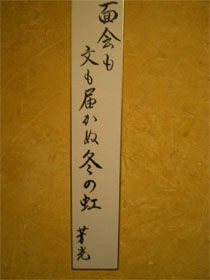 面会も
文も届かぬ冬の虹
芳光